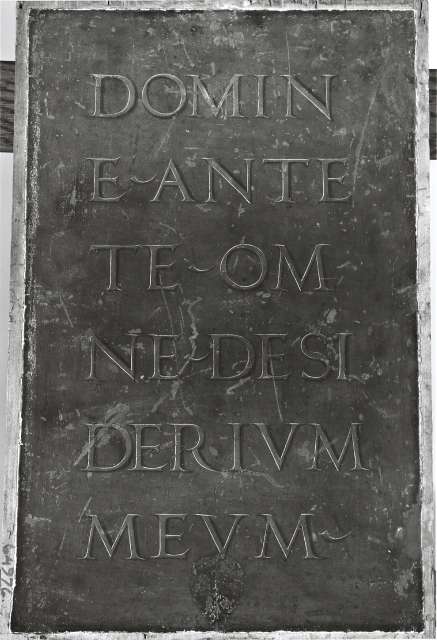 DOMIN
E~ANTE
TE~OM
NE~DESI
DERIVM
MEVM~
64976